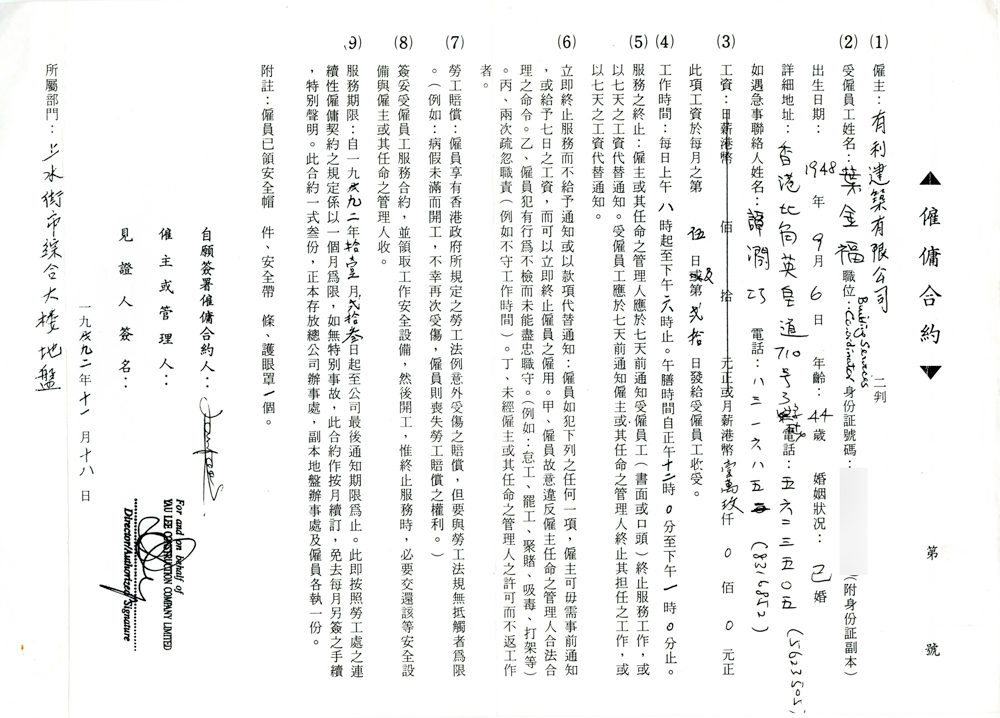 ▲僱傭合約▼
第 號
(1) 僱主：有利建築有限公司 二判
(2) 受僱員工姓名：葉金福 職位：Building Services Co-ordinator 身份証號碼： （附身份証副本）
出生日期： 1948 年 9 月 6 日 年齡：44 歲 婚姻狀況：已 婚
詳細地址：香港北角英皇道710号 電話：五六二三五〇五 (5623505)
如遇急事聯絡人姓名：譚潤巧 電話：八三一六八五 (8316852)
(3) 工資：日薪港幣 佰 拾 元正或月薪港幣壹萬玖仟 0 佰 0 元正
此項工資於每月之第 伍 日或及第 貳拾 日發給受僱員工收受。
(4) 工作時間：每日上午 八 時起至下午 六 時止。午膳時間自正午十二時 0 分至下午 一 時 0 分止。
(5) 服務之終止：僱主或其任命之管理人應於七天前通知受僱員工（書面或口頭）終止服務工作，或
以七天之工資代替通知。受僱員工應於七天前通知僱主或其任命之管理人終止其担任之工作，或
以七天之工資代替通知。
(6) 立即終止服務而不給予通知或以款項代替通知：僱員如犯下列之任何一項，僱主可毋需事前通知
，或給予七日之工資，而可以立即終止僱員之僱用。甲、僱員故意違反僱主任命之管理人合法合
理之命令。乙、僱員犯有行爲不檢而未能盡忠職守。（例如：怠工、罷工、聚賭、吸毒、打架等）
。丙、兩次疏忽職責（例如不守工作時間）。丁、未經僱主或其任命之管理人之許可而不返工作
者。
(7) 勞工賠償：僱員享有香港政府所規定之勞工法例意外受傷之賠償，但要與勞工法規無抵觸者爲限
。（例如：病假未滿而開工，不幸再次受傷，僱員則喪失勞工賠償之權利。）
(8) 簽妥受僱員工服務合約，並領取工作安全設備，然後開工，惟終止服務時，必要交還該等安全設
備與僱主或其任命之管理人收。
(9) 服務期限：自一九九二年拾壹月貳拾叁日起至公司最後通知期限爲止。此即按照勞工處之連
續性僱傭契約之規定係以一個月爲限，如無特別事故，此合約作按月續訂，免去每月另簽之手續
，特別聲明。此合約一式叁份，正本存放總公司辦事處，副本地盤辦事處及僱員各執一份。
附註：僱員已領安全帽 件、安全帶 條、護眼罩 個。
自願簽署僱傭合約人：
僱主或管理人：
For and on behalf of
YAU LEE CONSTRUCTION COMPANY LIMITED
Director/Authorized Signature
見證人簽名：
一九九二年十一月十八日
所屬部門：上水街市綜合大樓地盤